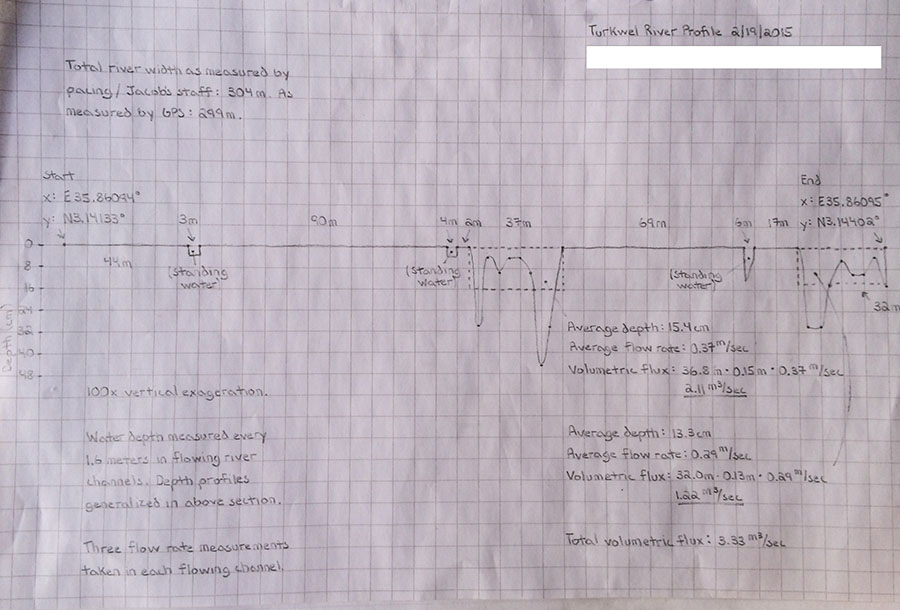 Turkwel River Profile 2/19/2015
Total river width as measured by
pacing/Jacob's staff: 304m. As
measured by GPS: 299m.
Start
x: E35.86094°
y: N3.14133°
End
x: E35.86095°
y: N3.14402°
3m
90m
4m
2m
37m
69m
6m
17m
44m
32m
(Standing
water)
(Standing
water)
(Standing
water)
0
8
16
24
32
40
48
Depth (cm)
Average depth: 15.4cm
Average flow rate: 0.37 m/sec
Volumetric flux: 36.8m · 0.15m · 0.37 m/sec
2.11 m³/sec
100x vertical exageration.
Water depth measured every
1.6 meters in flowing river
channels. Depth profiles
generalized in above section.
Average depth: 13.3cm
Average flow rate: 0.29 m/sec
Volumetric flux: 32.0m · 0.13m · 0.29 m/sec
1.22 m³/sec
Three flow rate measurements
taken in each flowing channel.
Total volumetric flux: 3.33 m³/sec